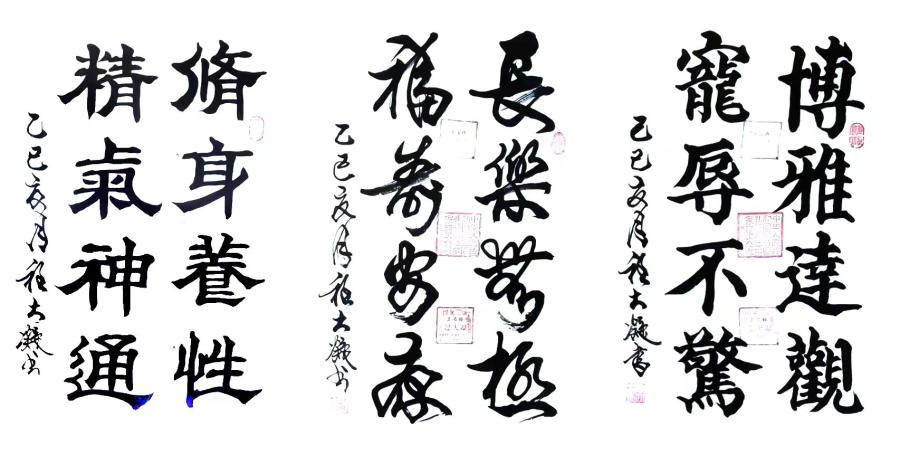 博雅達觀
寵辱不驚
乙巳亥月程大凝書
長樂無極
福壽安康
乙巳亥月程大凝书
脩身養性
精氣神通
乙巳亥月程大凝书